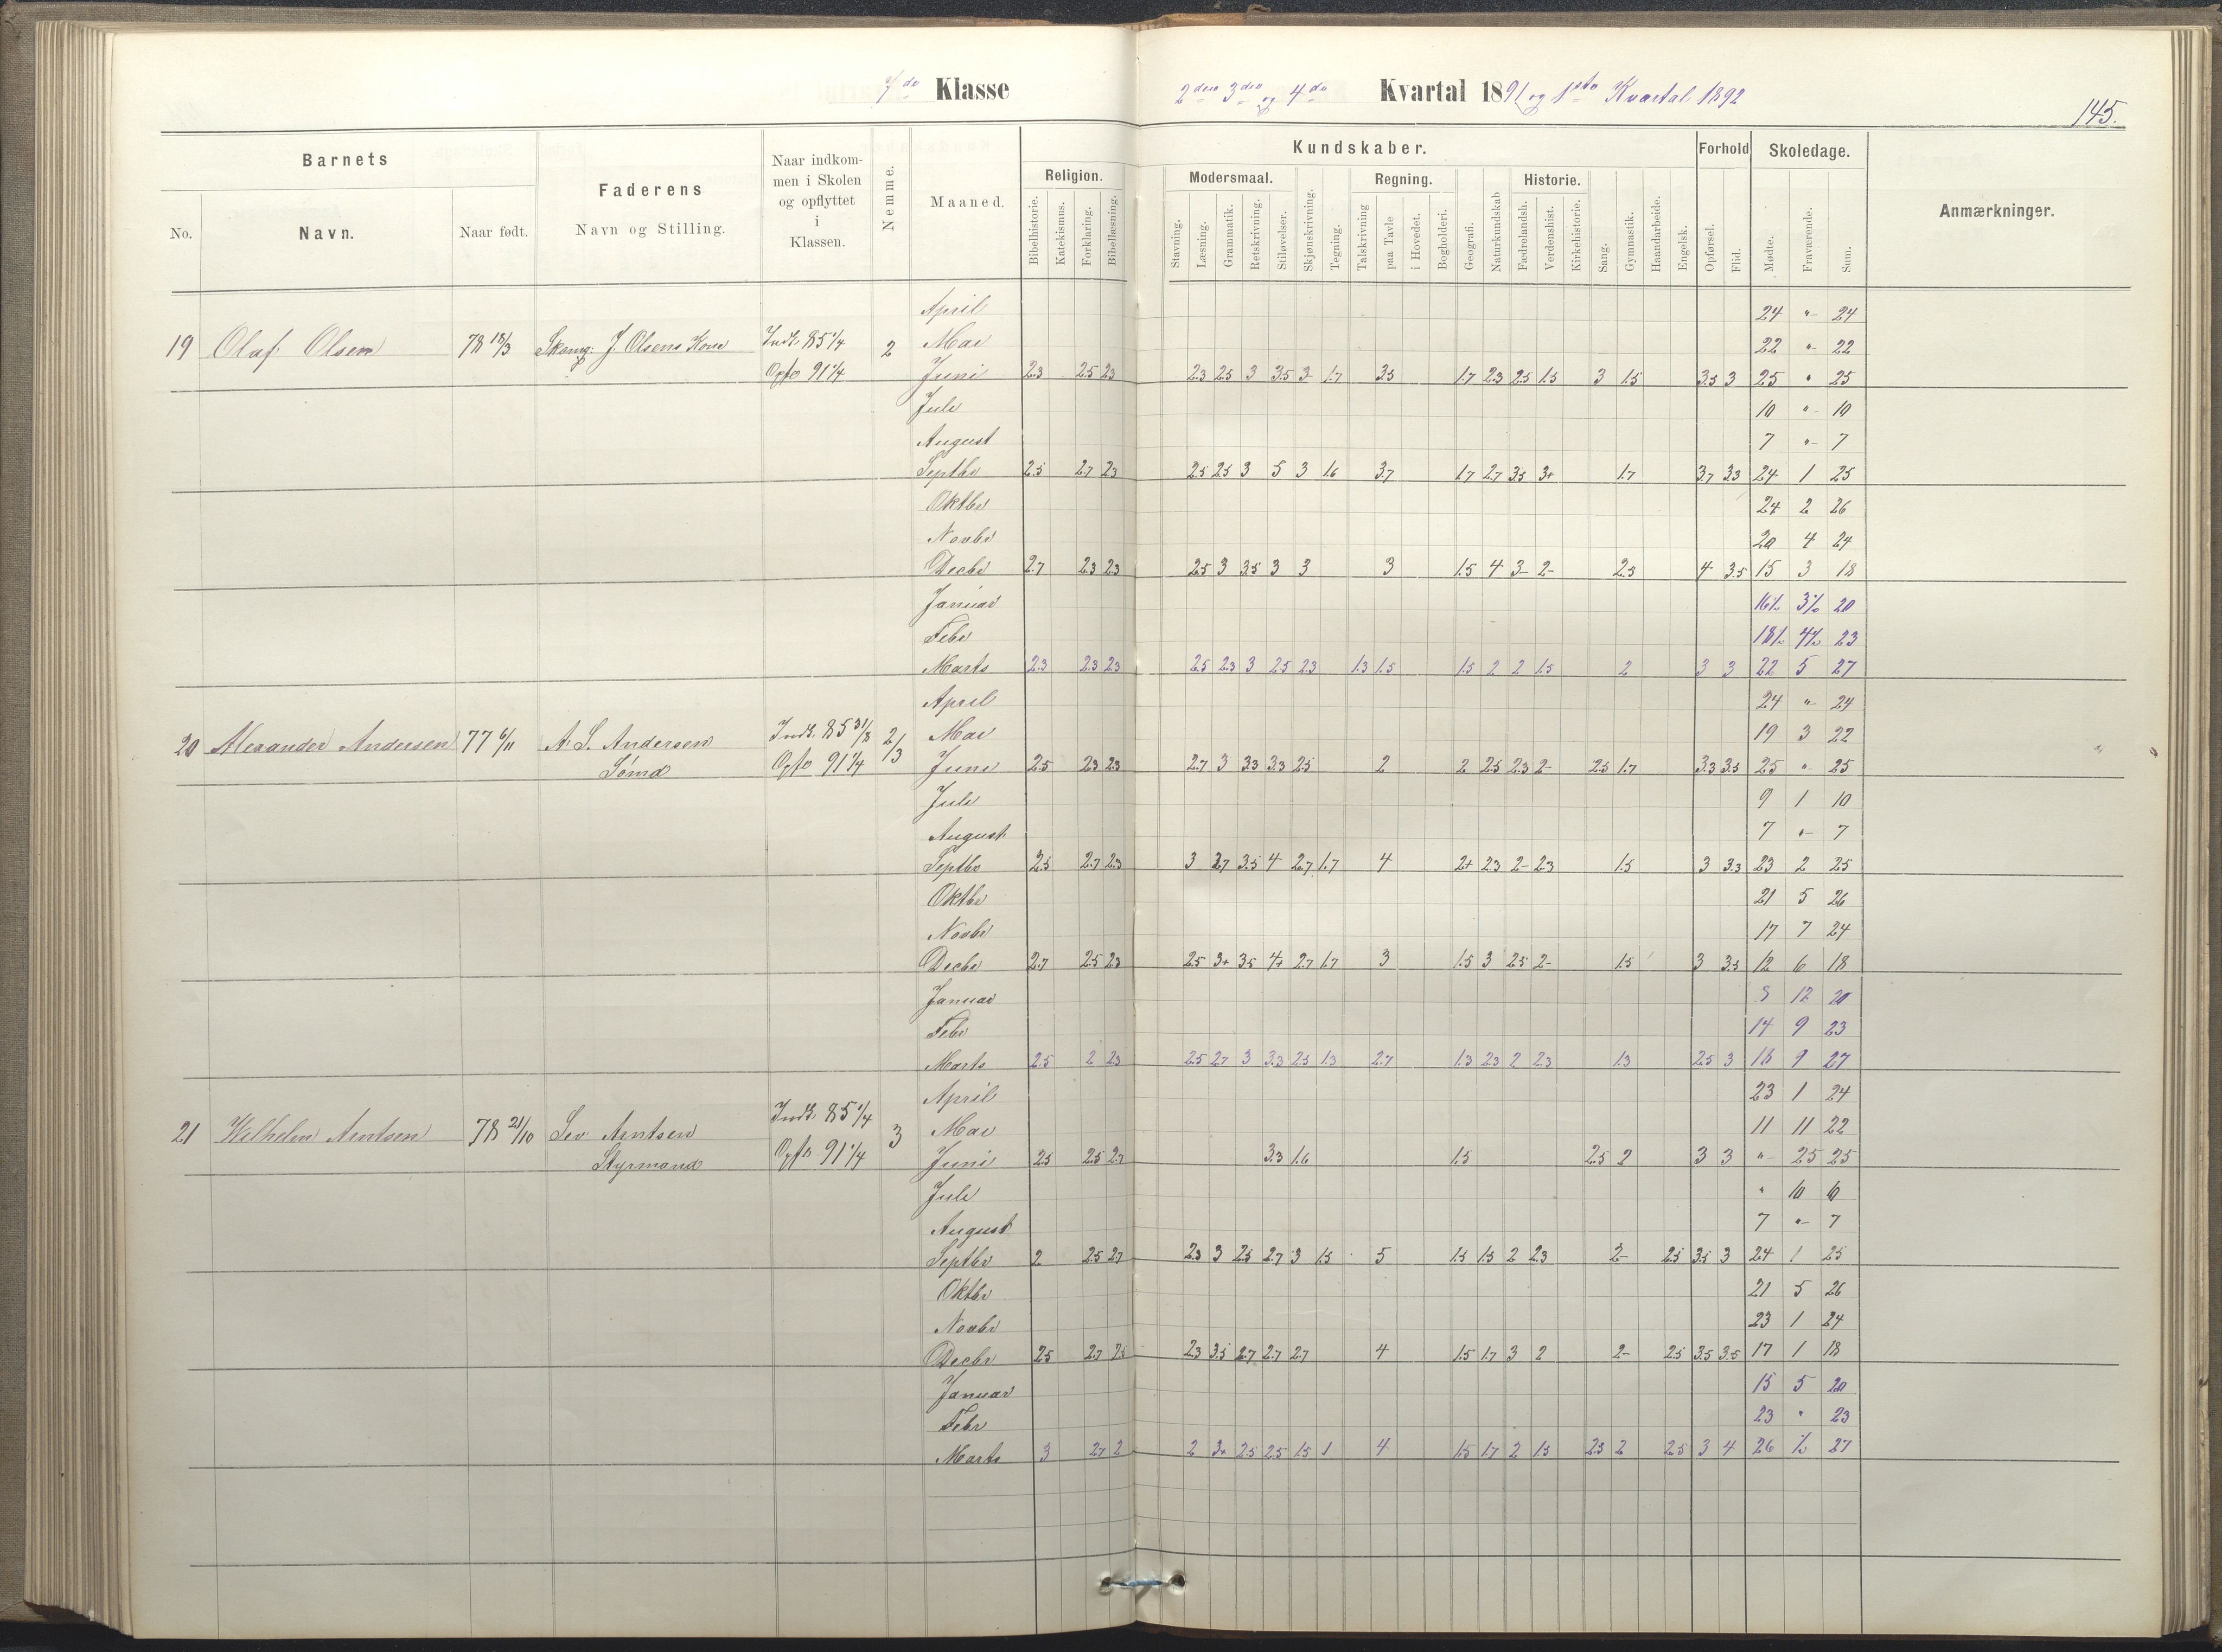 7de Klasse
2den 3die og 4de Kvartal 1891 og 1ste Kvartal 1892
145.
Barnets Faderens Naar indkommen i Skolen og opflyttet i Klassen. Nemme. Maaned. Kundskaber. Forhold Skoledage. Anmærkninger.
No. Navn. Naar født. Navn og Stilling. Religion. Modersmaal. Regning. Historie.
Bibelhistorie. Katekismus. Forklaring. Bibellæsning. Stavning. Læsning. Grammatik. Retskrivning. Stiløvelser. Skjønskrivning. Tegning. Talskrivning paa Tavle i Hovedet. Bogholderi. Geografi. Naturkundskab Fædrelandsh. Verdenshist. Kirkehistorie. Sang. Gymnastik. Haandarbeide. Engelsk. Opførsel. Flid. Mødte. Fraværende. Sum.
April 24 " 24
19 Olaf Olsen 78 18/3 J Olsens Kone Indk. 85 1/4 2 Mai 22 " 22
Opfl 91 1/4 Juni 2.3 2.5 2.3 2.3 2.5 3 3.5 3- 1.7 3.5 1.7 2.3 2.5 1.5 3 1.5 3.5 3 25 " 25
Juli 10 " 10
August 7 " 7
Septbr 2.5 2.7 2.3 2.5 2.5 3 5 3 1.6 3.7 1.7 2.7 3.5 3+ 1.7 3.7 3.3 24 1 25
Oktbr 24 2 26
Novbr 20 4 24
Decbr 2.7 2.3 2.3 2.5 3 3.5 3 3 3 1.5 4 3- 2- 2.3 4 3.5 15 3 18
Januar 16½ 3½ 20
Febr 18½ 4½ 23
Marts 2.3 2.3 2.3 2.5 2.3 3 2.5 2.3 1.3 1.5 1.5 2 2 1.5 2 3 3 22 5 27
April 24 " 24
20 Alexander Andersen 77 6/11 A. S. Andersen Indk. 85 31/8 2/3 Mai 19 3 22
Sømd Opfl 91 1/4 Juni 2.5 2.3 2.3 2.7 3 3.3 3.3 2.5 2 2 2.5 2.3 2- 2.5 1.7 3.3 3.5 25 " 25
Juli 9 1 10
August 7 " 7
Septbr 2.5 2.7 2.3 3 2.7 3.5 4 2.7 1.7 4 2+ 2.3 2- 2.3 1.5 3 3.3 23 2 25
Oktbr 21 5 26
Novbr 17 7 24
Decbr 2.7 2.5 2.3 2.5 3+ 3.5 4+ 2.7 1.7 3 1.5 3 2.5 2- 1.5 3 3.5 12 6 18
Januar 12 20
Febr 14 9 23
Marts 2.5 2 2.3 2.5 2.7 3 3.3 2.5 1.3 2.7 1.3 2.3 2 2.3 1.3 2.5 3 18 9 27
April 23 1 24
21 Wilhelm Arntsen 78 21/10 Sev. Arntsen Indk. 85 1/4 3 Mai 11 11 22
Styrmand Opfl 91 1/4 Juni 2.5 2.5 2.7 3.3 1.6 1.5 2.5 2 3 3 " 25 25
Juli " 10 10
August 7 " 7
Septbr 2 2.5 2.7 2.3 3 2.5 2.7 3 1.5 5 1.5 1.5 2 2.3 2- 2.5 3.5 3 24 1 25
Oktbr 21 5 26
Novbr 23 1 24
Decbr 2.5 2.7 2.5 2.3 3.5 2.7 2.7 2.7 4 1.5 1.7 3 2 2- 2.5 3.5 3.5 17 1 18
Januar 15 5 20
Febr 23 " 23
Marts 3 2.7 2 2 3+ 2.5 2.5 1.5 1 4 1.5 1.7 2 1.5 2.3 2 2.5 3 4 26 ½ 27